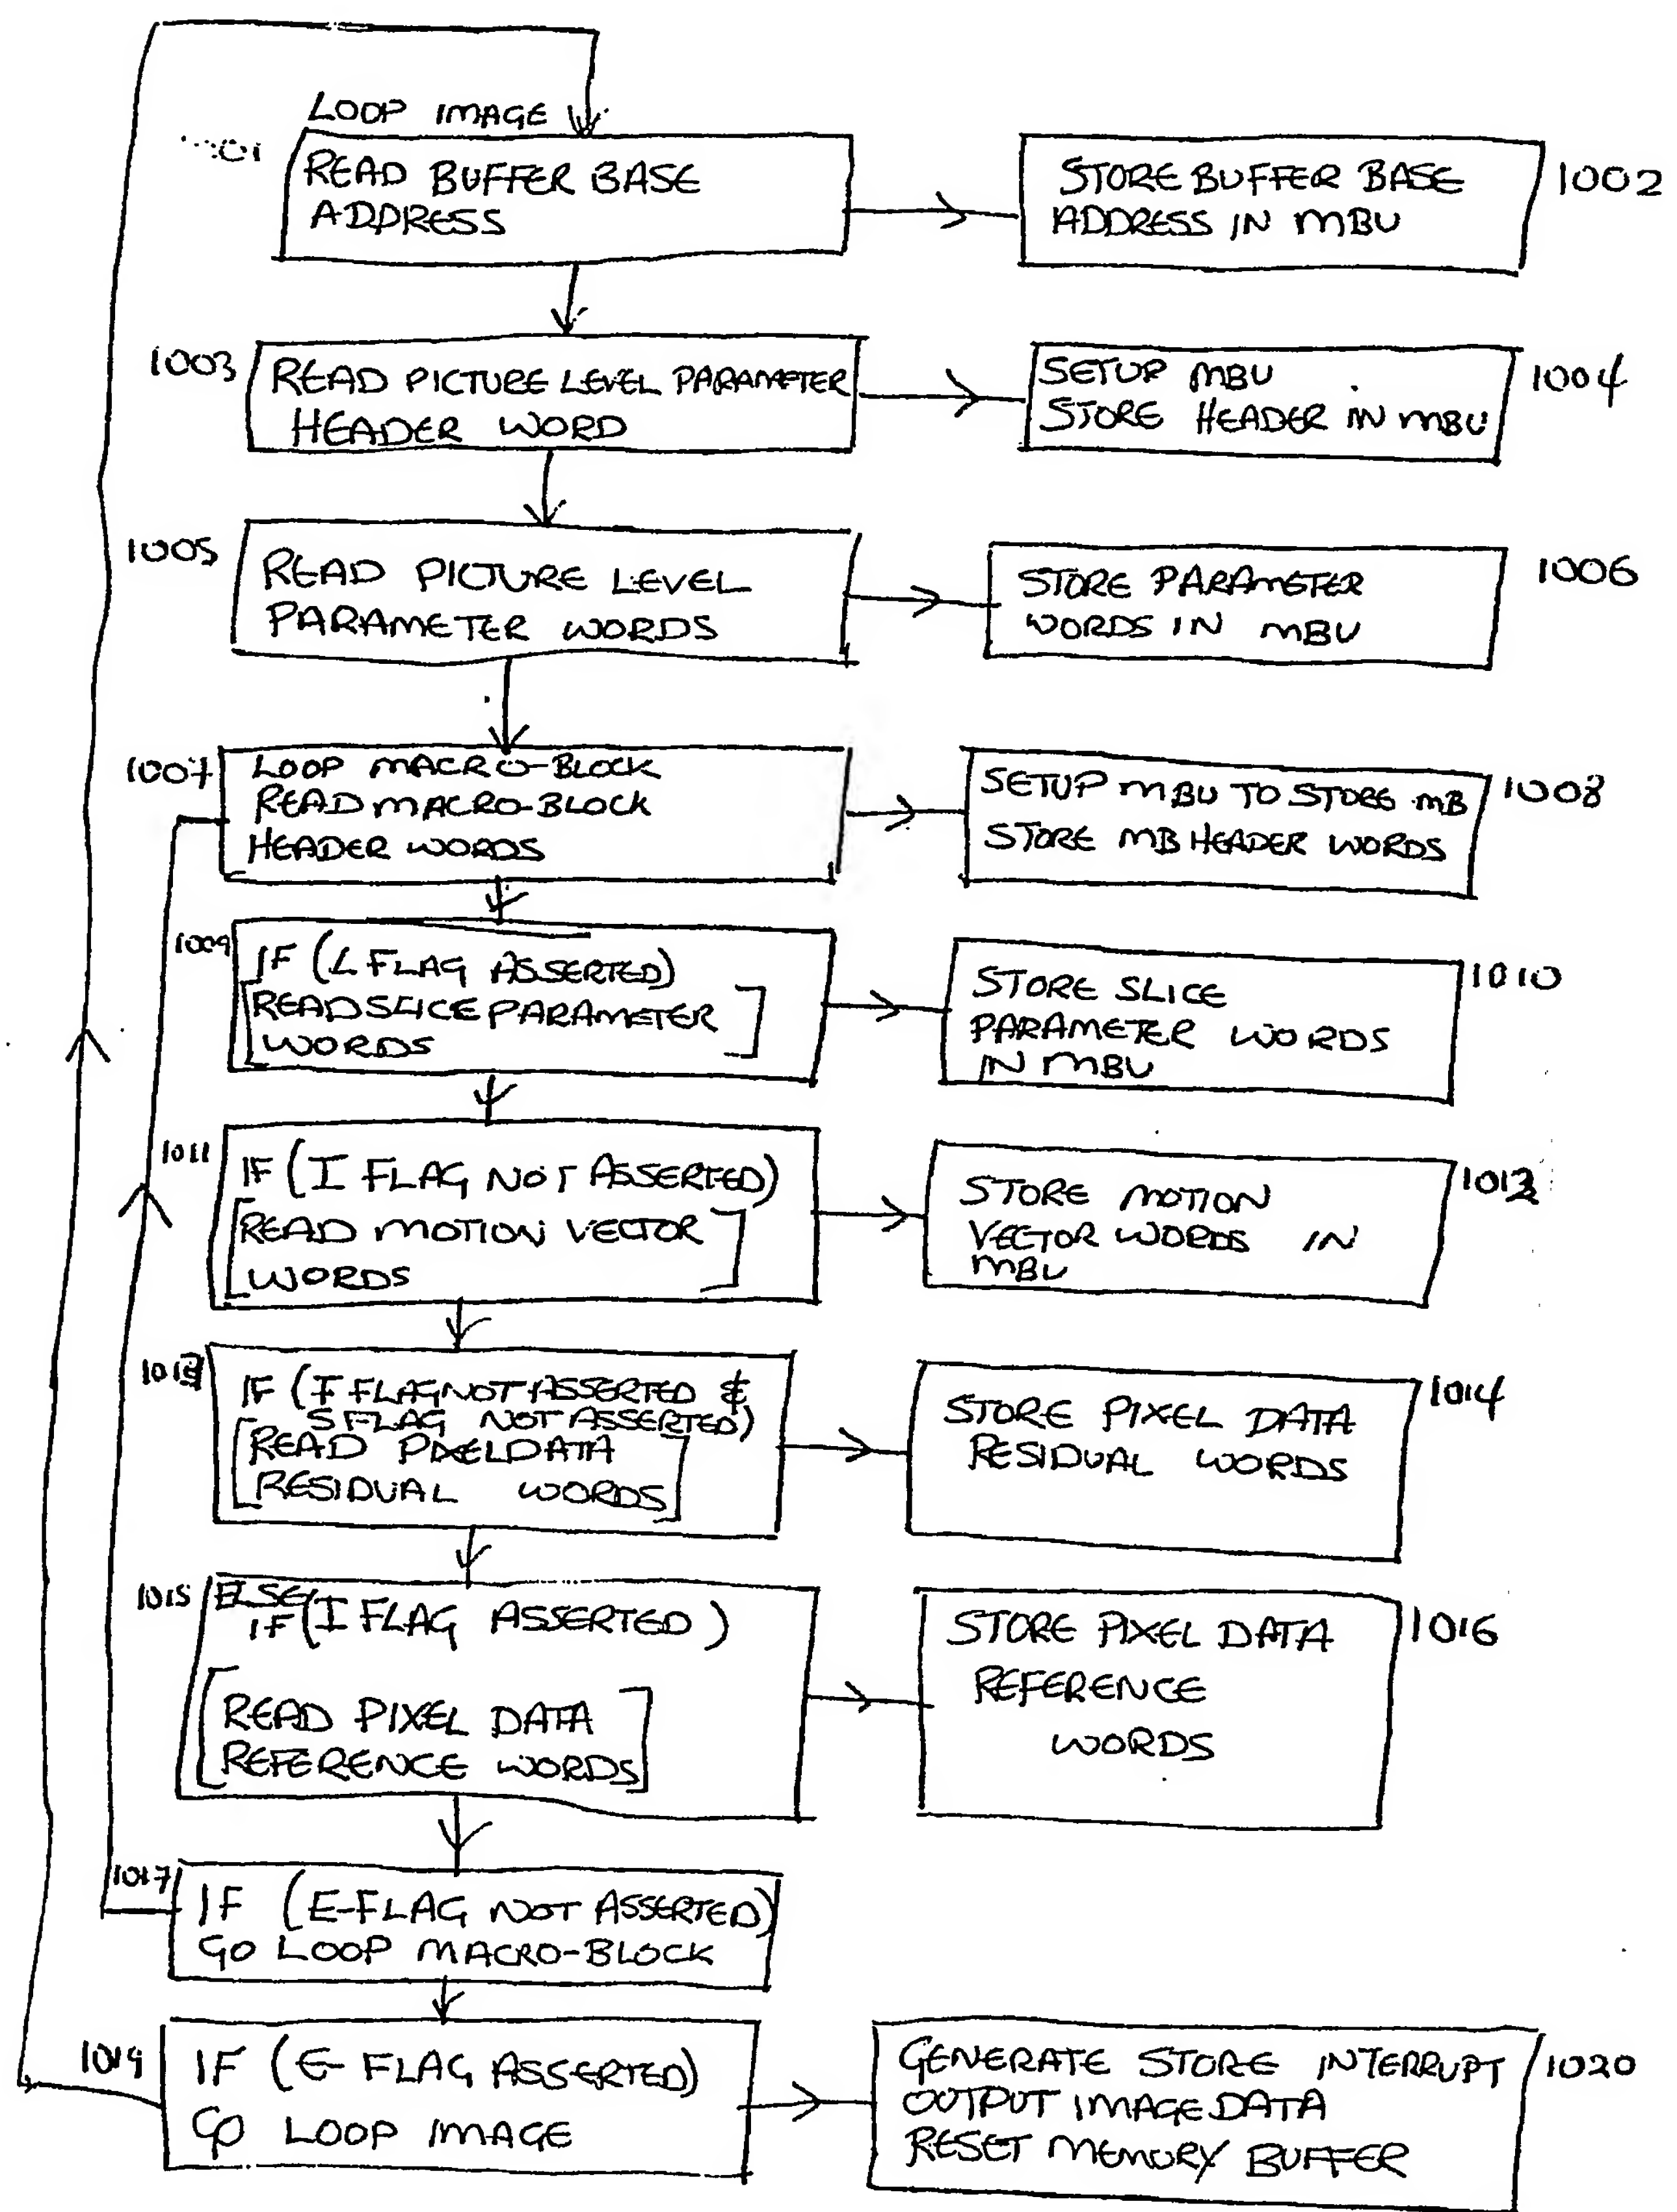 LOOP IMAGE
READ BUFFER BASE
ADDRESS
STORE BUFFER BASE
ADDRESS IN MBU
1002
1003
READ PICTURE LEVEL PARAMETER
HEADER WORD
SETUP MBU
STORE HEADER IN MBU
1004
1005
READ PICTURE LEVEL
PARAMETER WORDS
STORE PARAMETER
WORDS IN MBU
1006
1007
LOOP MACRO-BLOCK
READ MACRO-BLOCK
HEADER WORDS
SETUP MBU TO STORE MB
STORE MB HEADER WORDS
1008
1009
IF (L FLAG ASSERTED)
[READ SLICE PARAMETER
WORDS]
STORE SLICE
PARAMETER WORDS
IN MBU
1010
1011
IF (I FLAG NOT ASSERTED)
[READ MOTION VECTOR
WORDS]
STORE MOTION
VECTOR WORDS IN
MBU
1012
1013
IF (I FLAG NOT ASSERTED &
S FLAG NOT ASSERTED)
[READ PIXEL DATA
RESIDUAL WORDS]
STORE PIXEL DATA
RESIDUAL WORDS
1014
1015
ELSE
IF (I FLAG ASSERTED)
[READ PIXEL DATA
REFERENCE WORDS]
STORE PIXEL DATA
REFERENCE
WORDS
1016
1017
IF (E-FLAG NOT ASSERTED)
GO LOOP MACRO-BLOCK
1019
IF (E-FLAG ASSERTED)
GO LOOP IMAGE
GENERATE STORE INTERRUPT
OUTPUT IMAGE DATA
RESET MEMORY BUFFER
1020